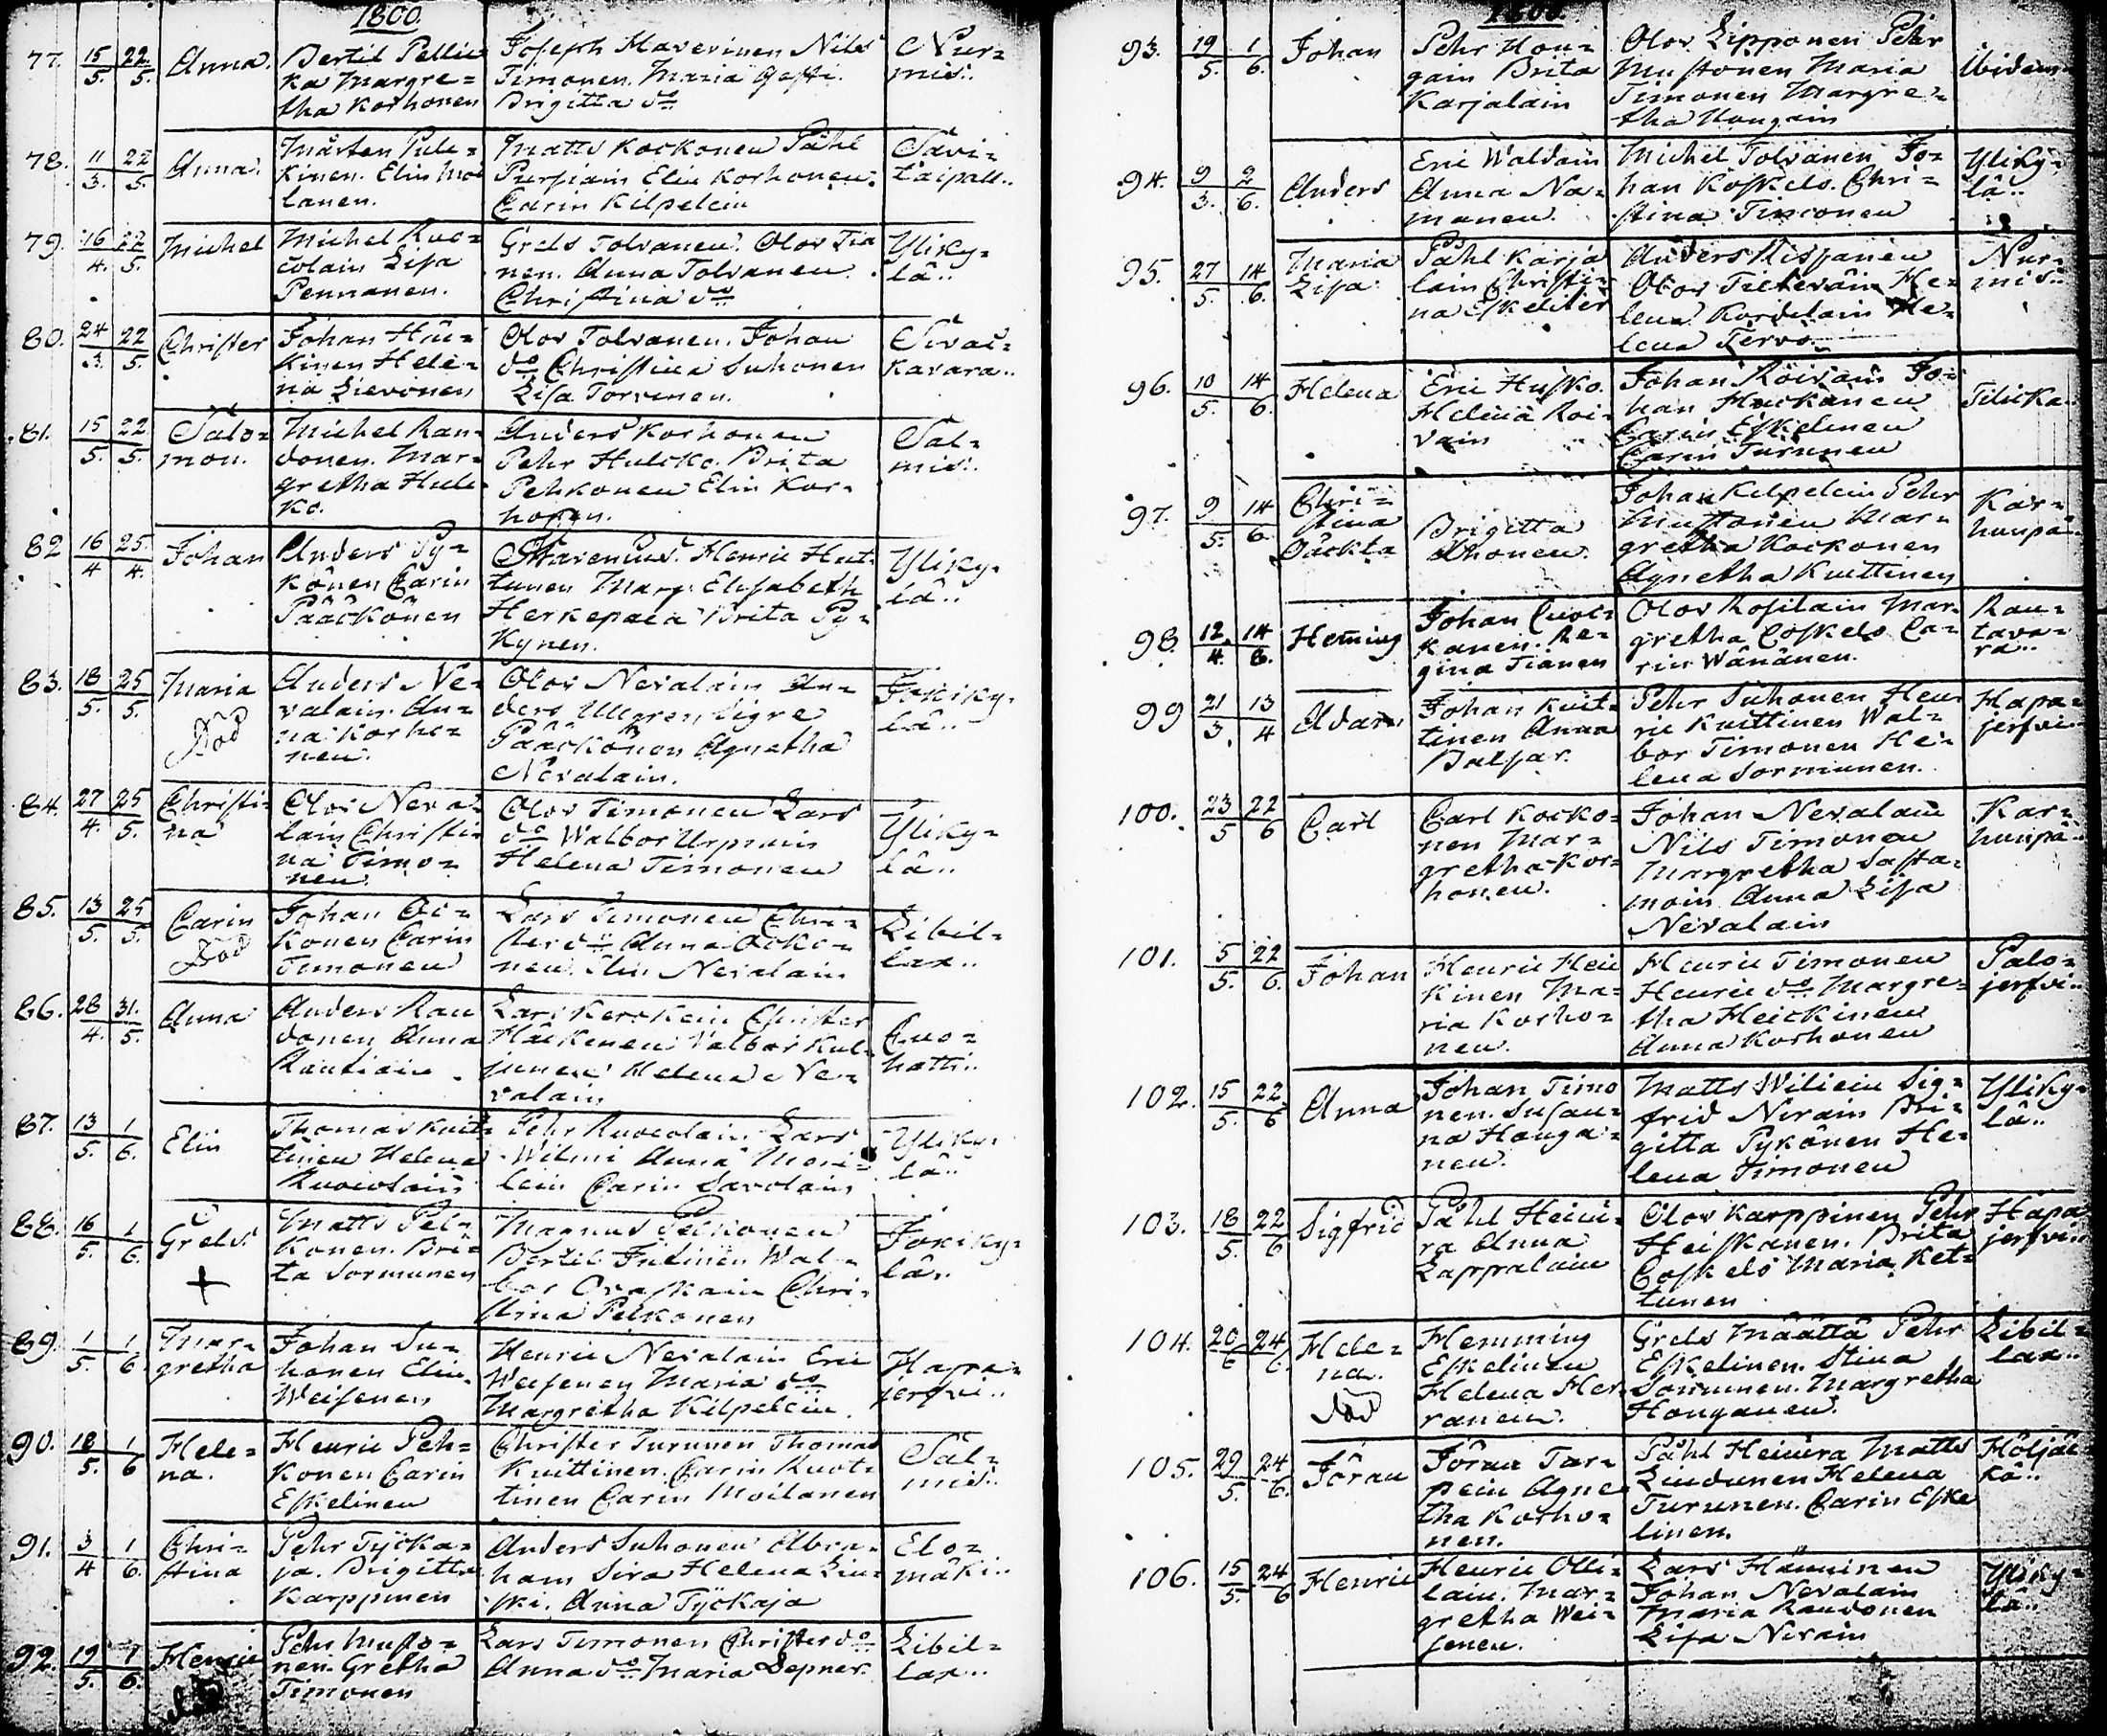 1800.
77. 15/5. 22/5. Anna. Bertil Pellic
ka Margre=
tha Korhonen
Joseph Haverinen Nils
Timonen. Maria
Brigitta do
Nur=
mis..
78. 11/3. 22/5. Anna. Mårten Pule=
kinen. Elin Moi
lanen.
Matts Kockonen Påhl
Purpain Elin Korhonen.
Carin Kilpelein
Savi=
kaipall..
79. 16/4. 22/5. Michel Michel Ruo=
colain Lisa
Pennanen.
Grels Tolvanen. Olov Tia
nen. Anna Tolvanen
Christina do
Yliky=
lä..
80. 24/3. 22/5. Christer Johan Häi=
kinen Hele=
na Lievonen
Olov Tolvanen. Johan
do Christina Suhonen
Lisa Torvinen.
Sivac=
kavara..
81. 15/5. 22/5. Salo=
mon. Michel Ran=
donen. Mar=
gretha Hule
ko.
Anders Korhonen
Pehr Hulcko. Brita
Pehkonen Elin Kor=
honen.
Sal=
mis..
82 16/4 25/4. Johan Anders Py=
könen Carin
Pääckönen
Stravenius. Henric Hut=
tunen Marg. Elisabeth
Herkepaea Brita Py=
kynen.
Yliky=
lä..
83. 18/5. 25/5. Maria
Död
Anders Ne=
valain. An=
na Korho=
nen.
Olov Nevalain An=
ders Ullgren Sigre
Pääckönen Agnetha
Nevalain.
Jokiky=
lä..
84. 27/4. 25/5. Christi=
na Olov Neva=
lain Christi=
na Timo=
nen.
Olov Timonen Lars
do Walbor Urpiain
Helena Timonen
Yliky=
lä..
85. 13/5. 25/5. Carin
Död
Johan Oc=
konen Carin
Timonen
Lars Timonen Chri=
ster do Anna Ocko=
nen. Elin Nevalain
Libil=
lax..
86. 28/4. 31./5. Anna Anders Ran
donen Anna
Rautiain.
Lars Kerskein Christer
Häikinen Valbor Kul=
junen Helena Ne=
valain
Cuo=
hatti..
87. 13/5. 1/6. Elin Thomas Kuit=
tinen Helena
Ruocolain
Pehr Ruocolain Lars
Wilmi Anna Moi=
lain Carin Savolain
Yliky=
lä..
88. 16/5. 1/6. Grels.
+
Matts Pel=
konen. Bri=
ta Sormunen
Magnus Pelkonen
Bertil Jutinen Wal=
bor Oraskain Chri=
stina Pelkonen
Jokiky=
lä..
89. 1/5. 1/6 Mar=
gretha Johan Su=
honen Elin
Weisenen
Henric Nevalain Eric
Weisenen Maria do
Margretha Kilpelein.
Hapa=
jerfvi..
90. 18/5. 1/6 Hele=
na. Henric Peh=
konen Carin
Eskelinen
Christer Turunen Thomas
Kuittinen. Carin Ruot=
tinen Carin Moilanen
Sal=
mis..
91. 3/4 1/6. Chri=
stina Pehr Tycka=
ja. Brigitta
Karppinen
Anders Suhonen Abra=
ham Sira Helena Lin=
ski. Anna Tyckaja
Elo=
mäki..
92. 19/5. 1/6. Henric
Pehr Musto=
nen. Gretha
Timonen
Lars Timonen Christer do
Anna do Maria Depner.
Libil=
lax..
1800.
93. 19/5. 1/6. Johan Pehr Hou=
gain Brita
Karjalain
Olov Lipponen Pehr
Mustonen Maria
Timonen Margre=
tha Hougain
Ibidem
94. 9/3. 2/6. Anders Eric Waldain
Anna No=
manen.
Michel Tolvanen Jo=
han Koskelo. Chri=
stina Timonen
Yliky=
lä..
95. 27/5. 14/6. Maria
Lisa Påhl Karja
lain Christi=
na Eskeliter
Anders Kispanen
Olov Tieteväin He=
lena Kordelain He=
lena Tervo.
Nur=
mis..
96. 10/5. 14/6. Helena Eric Husko.
Helena Roi=
vain
Johan Roivain Jo=
han Hackanen
Carin Eskelinen
Carin Turunen
Tilika..
97. 9/5. 14/6. Chri=
stina
Oäckta Brigitta
Ahonen.
Johan Kilpelein Pehr
Mustonen Mar=
gretha Kockonen
Agnetha Kuittinen
Kar=
hunpä..
98. 12/4. 14/6. Heming Johan Cuoc=
kanen. Re=
gina Tianen
Olov Rosilain Mar=
gretha Coskelo Ca=
rin Wänänen.
Rau=
tava=
ra..
99 21/3. 13/4 Adam Johan Kuit=
tinen Anna
Balsar.
Pehr Suhonen Hen
ric Kuittinen Wal=
bor Timonen He=
lena Sormunen.
Hapa=
jerfvi..
100. 23/5 22/6 Carl Carl Kocko=
nen Mar=
gretha Kor=
honen.
Johan Nevalain
Nils Timonen
Margretha Sasta=
moin. Anna Lisa
Nevalain
Kar=
hunpä..
101. 5/5. 22/6. Johan Henric Hei
kinen Ma=
ria Korho=
nen.
Henric Timonen
Henric do Margre=
tha Heickinen
Anna Korhonen
Palo=
jerfvi..
102. 15/5. 22/6 Anna Johan Timo
nen. Susan=
na Houga=
nen.
Matts Wiliein Sig=
frid Nivain Bri=
gitta Pykönen He=
lena Timonen
Yliky=
lä..
103. 18/5. 22/6 Sigfrid Påhl Heicu=
ra Anna
Lappalain
Olov Karppinen Pehr
Heiskanen. Brita
Coskelo Maria Ket=
tunen
Hapa
jerfvi..
104. 20/6 24/6. Hele=
na.
Död
Hemming
Eskelinen
Helena Her=
ranen.
Grels Määttä Pehr
Eskelinen. Stina
Sormunen. Margretha
Houganen.
Libil=
lax..
105. 29/5. 24/6. Jöran Jöran Tur=
pein Agne
tha Korho=
nen.
Påhl Heicura Matts
Lindunen Helena
Turunen. Carin Eske
linen.
Höljäc
kä..
106. 15/5. 24/6 Henric Henric Olli=
lain. Mar=
gretha Wei=
senen.
Lars Hämiinen
Johan Nevalain
Maria Raudonen
Lisa Nivain
Yliky=
lä..